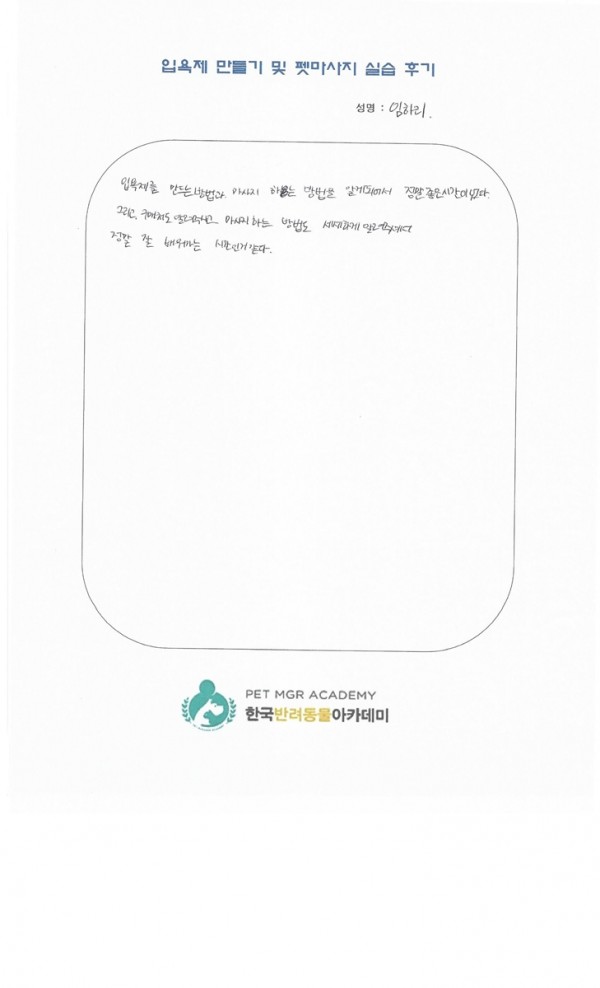 입욕제 만들기 및 펫마사지 실습 후기
성명 : 임하리.
입욕제를 만드는방법과 마사지 하는 방법을 알게되어서 정말 좋은시간이었다.
그리고, 마사지하는 방법도 세세하게
정말 잘 배우는 시간인거같다.
PET MGR ACADEMY
한국반려동물아카데미